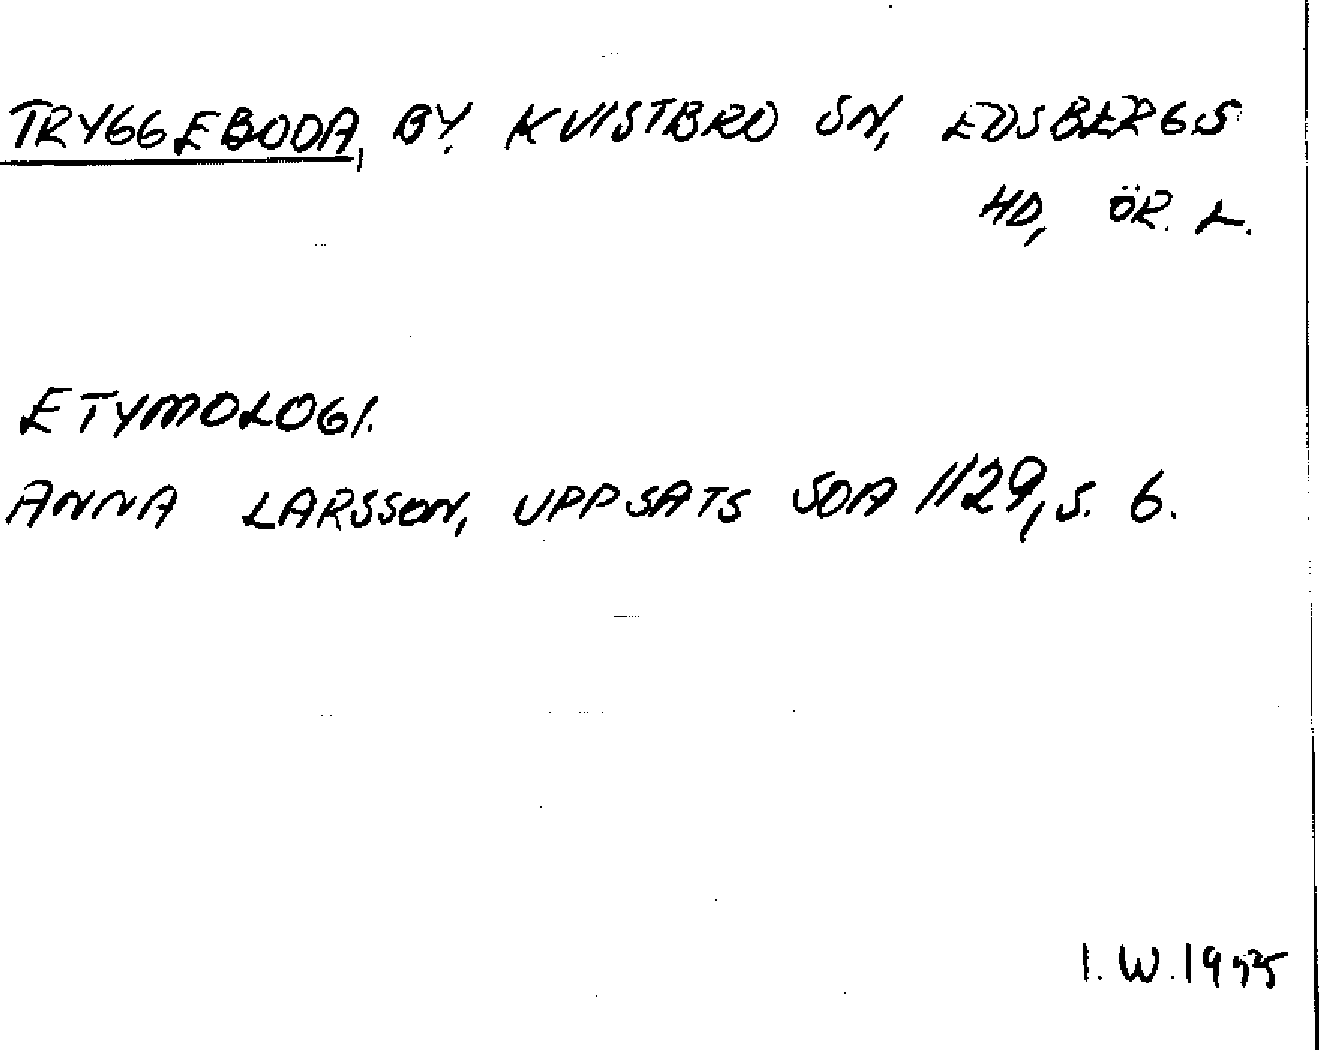 TRYGGEBODA, BY. KVISTBRO SN, EDSBERGS
HD, ÖR. L.
ETYMOLOGI.
ANNA LARSSON, UPPSATS SOA 1129, S. 6.
I.W. 1975